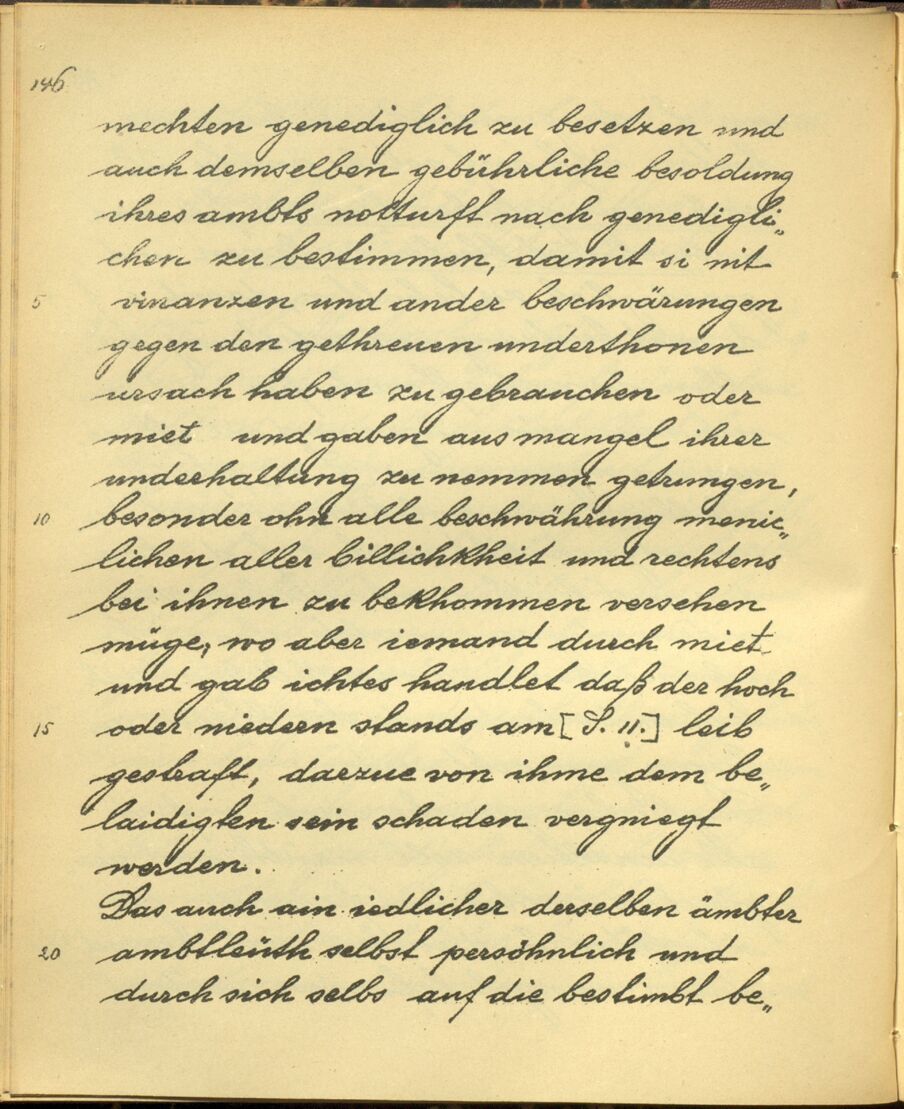 146
mechten genediglich zu besetzen und
auch demselben gebührliche besoldung
ihres ambts notturft nach genedigli„
chen zu bestimmen, damit si nit
5 vinanzen und ander beschwärungen
gegen den gethreuen underthonen
ursach haben zu gebrauchen oder
miet und gaben aus mangel ihrer
underhaltung zu nemmen getrungen,
10 besonder ohn alle beschwährung menic„
lichen aller billichkheit und rechtens
bei ihnen zu bekhommen versehen
müge, wo aber iemand durch miet
und gab ichtes handlet daß der hoch
15 oder niedern stands am [S. 11.] leib
gestraft, darzue von ihme dem be„
laidigten sein schaden vergniegt
werden.
Das auch ain iedlicher derselben ämbter
20 ambtleüth selbst persöhnlich und
durch sich selbs auf die bestimbt be„